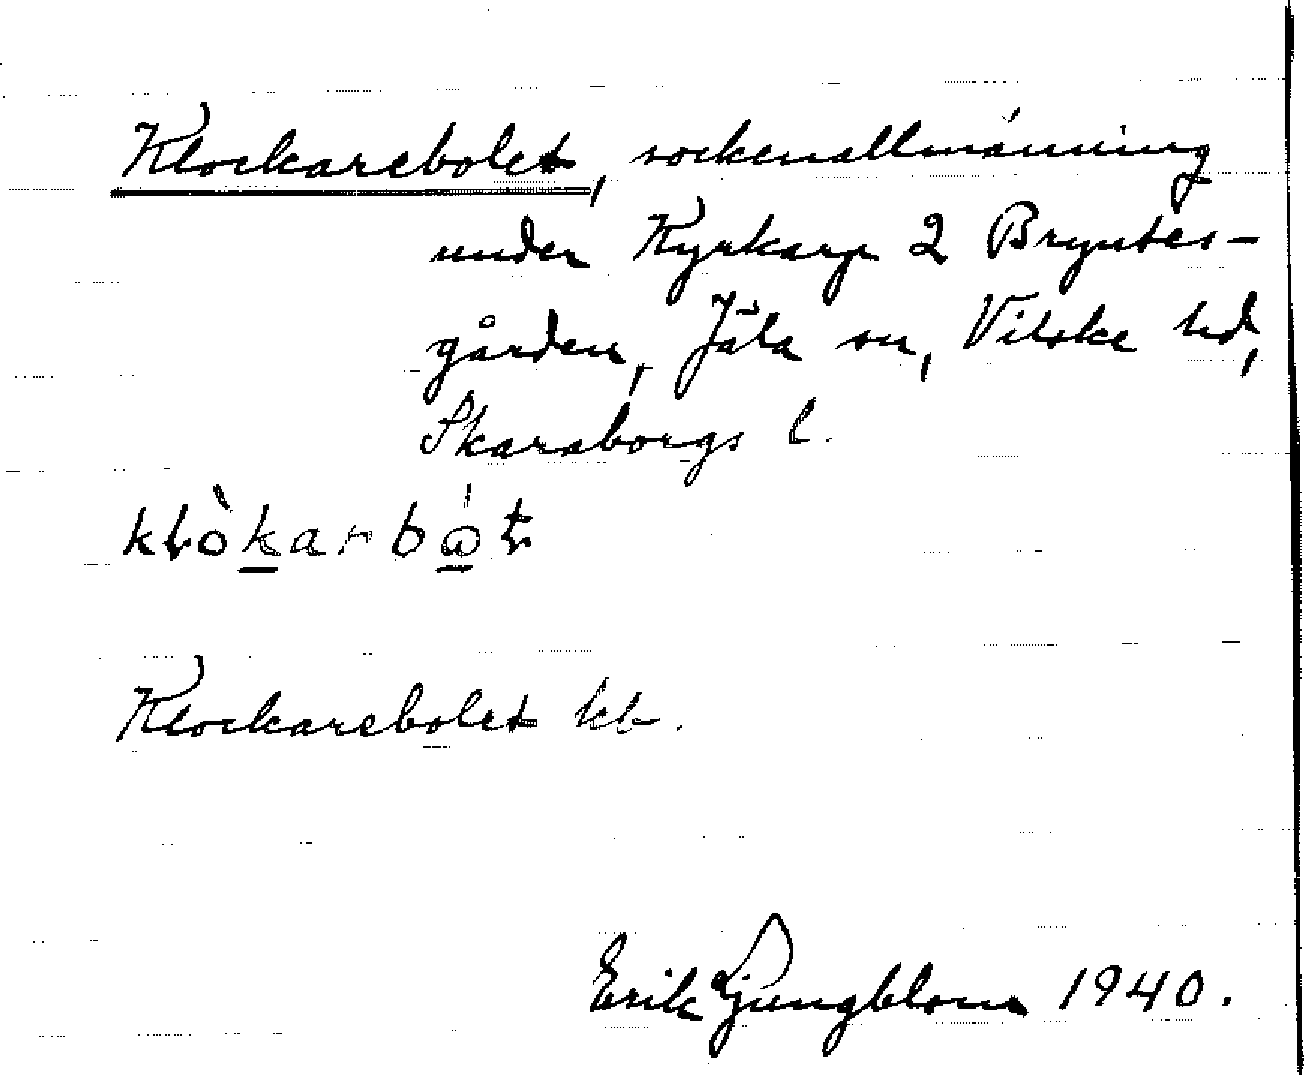 Klockarebolet, sockenallmänning
under Kyrkarp 2 Bryntes-
gården, Jäla sn, Vilske hd,
Skaraborgs l.
Klockarebolet kb.
Erik Ljungblom 1940.